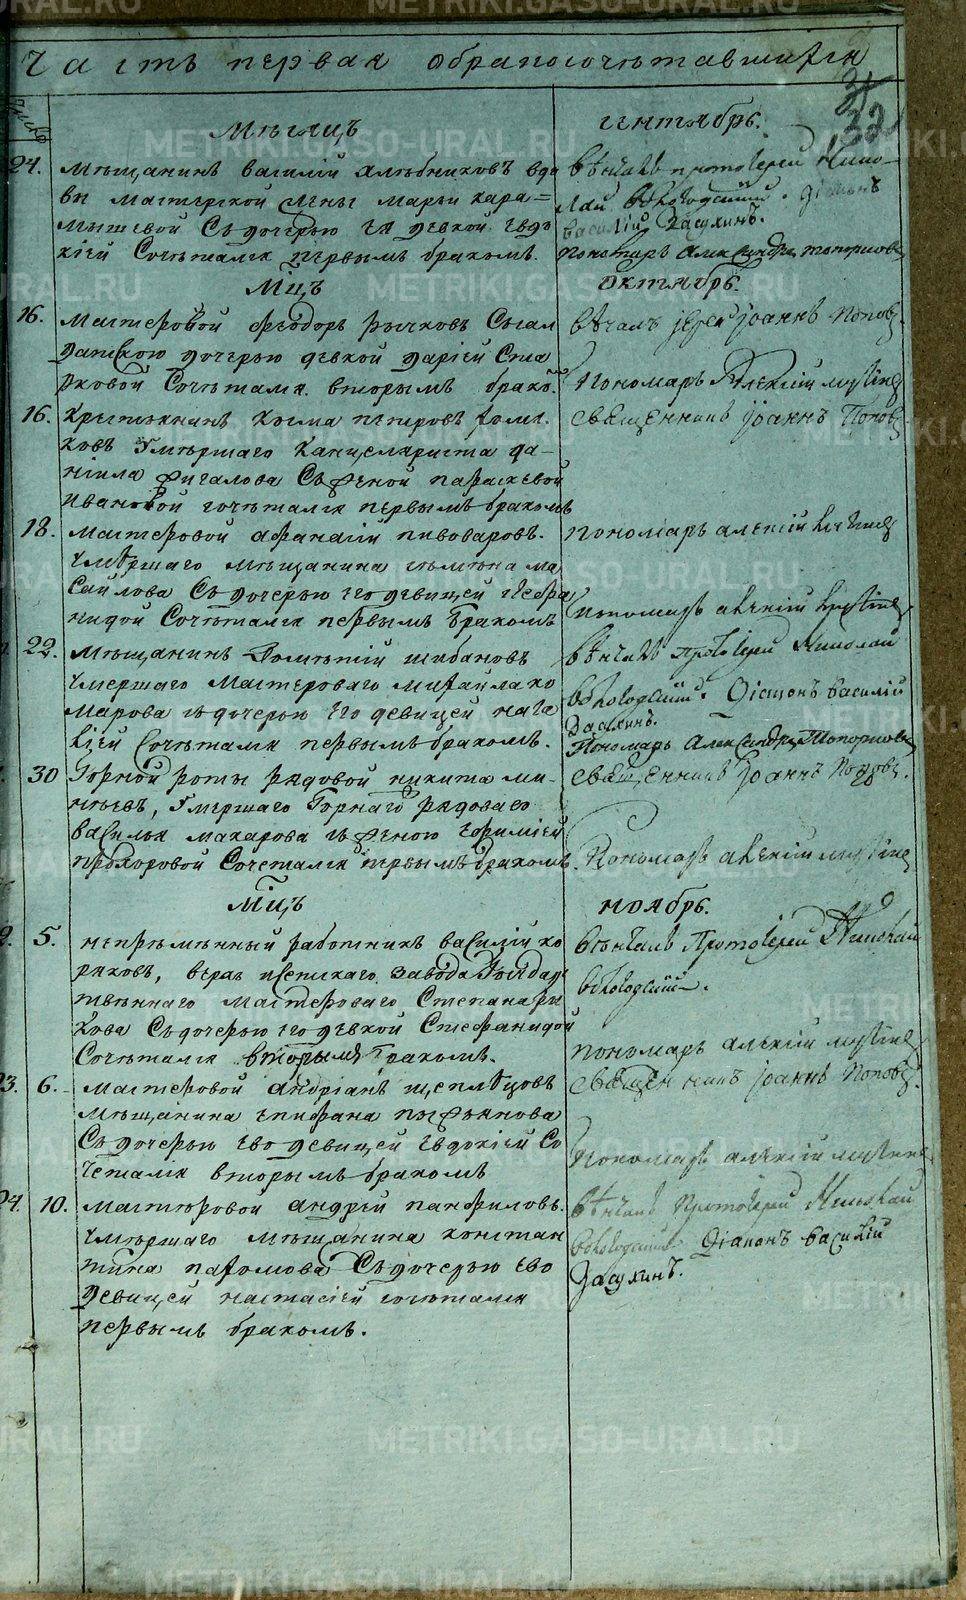 Часть первая обракосочетавшихся
32
Мѣсяцъ
сентябрь.
24. мѣщанинъ василій хлѣбниковъ вдо
вы мастерской жены марьи кара=
мышевой Съ дочерью ея девкой Евдо
кіей Сочетался первымъ бракомъ.
вѣнчалъ протоіерей Нико-
лай вологодскій. діаконъ
василій Засухинъ.
пономарь Александръ топорковъ
Мцъ
октябрь.
16. мастеровой феодоръ рычковъ Съсол
датскою дочерью девкой дарьей Ста
рковой Сочетался вторымъ бракомъ
вѣнчалъ іерей іоаннъ поповъ.
Пономарь Алексій
16. Крестьянинъ козма петровъ
ковъ умершаго канцеляриста да-
ніила фигалова Съ женой параскевой
ивановой сочетался первымъ бракомъ
священникъ іоаннъ Поповъ
18. мастеровой афанасій пивоваровъ.
умершаго мѣщанина
сайлова Съ дочерью его девицей
нидой Сочетался первымъ бракомъ
пономарь алексій
пономарь алексій
22. мѣщанинъ Дометій шабановъ
умершаго мастероваго михайла ко
марова съ дочерью его девицей ната
ліей Сочетался первымъ бракомъ.
вѣнчалъ Протоіерей Николай
вологодскій. Діаконъ василій
Засухинъ.
Пономарь Александръ Топорковъ
30 Горной роты рядовой никита ми-
нѣевъ, умершаго Горнаго рядоваго
василья макарова съ женою
прохоровой Сочетался первымъ бракомъ.
священникъ іоаннъ поповъ.
Пономарь алексій
Мцъ
ноябрь.
5. непремѣнный работникъ василій ко
ряковъ, верхъ исетскаго завода
мастероваго Степана ры
кова Съ дочерью его девкой Стефанидой
Сочетался вторымъ бракомъ.
вѣнчалъ Протоіерей Николай
вологодскій.
пономарь алексій
23. 6. мастеровой андріанъ щеплецовъ
мѣщанина епифана пырьянова
Съ дочерью ево девицей евдокіей Со
четался вторымъ бракомъ
священникъ іоаннъ поповъ.
Пономарь алексій
24. 10. мастеровой андрей панфиловъ.
умершаго мѣщанина констан
тина пахомова Съ дочерью ево
девицей настасіей сочетался
первымъ бракомъ.
вѣнчалъ Протоіерей Николай
вологодскій Діаконъ василій
Засухинъ.
METRIKI.GASO-URAL.RU